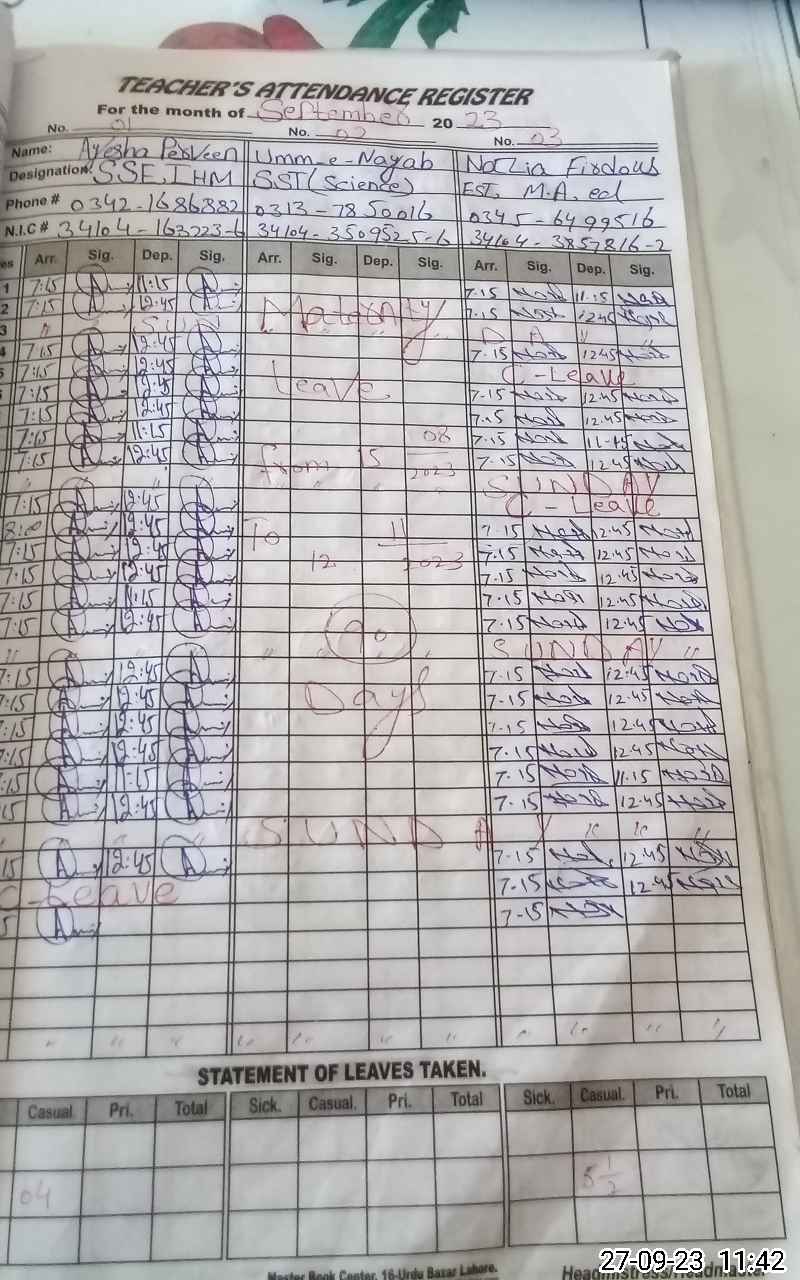 TEACHER'S ATTENDANCE REGISTER
For the month of September 20 23
No. 01 No. 02 No. 03
Name: Ayesha Perveen Umm-e-Nayab Nazlia Firdous
Designation: SSE, IHM SST (Science) EST, M.A, ed
Phone # 0342-1686882 0313-7850016 0345-6499516
N.I.C # 34104-163223-6 34104-3509525-6 34104-3857816-2
es Arr. Sig. Dep. Sig. Arr. Sig. Dep. Sig. Arr. Sig. Dep. Sig.
1 7:15 11:15 7.15 11-15
2 7:15 12:45 Maternity 7.15 12:45
3 " SUN
4 7:15 12:45 7.15 12:45
7:15 12:45 C-Leave
7:15 12:45 Leave 7.15 12.45
7:15 12:45 7.15 12.45
7:15 11:15 08 7.15
7:15 12:45 from 15 2023 7.15 12.45
SUNDAY
7:15 12:45 C-Leave
8:00 12:45 To 11 7.15 12.45
7:15 12:45 12 2023 7.15 12.45
7:15 12:45 7.15 12.45
7:15 11:15 7.15 12.45
7:15 12:45 90 7.15 12.45
" " " SUNDAY "
7:15 12:45 Days 7.15 12:45
7:15 12:45 7.15 12.45
7:15 12:45 7.15 12.45
7:15 12:45 7.15 12.45
:15 11:15 7.15 11.15
15 12:45 7.15 12.45
SUNDAY " " "
15 12:45 7.15 12.45
C-Leave 7.15 12.45
5 7.15
" " " " " " " " "
STATEMENT OF LEAVES TAKEN.
Casual Pri. Total Sick. Casual. Pri. Total Sick. Casual. Pri. Total
04 5 1/2
Master Book Center, 16-Urdu Bazar Lahore. Headmistress/Headmaster
27-09-23 11:42